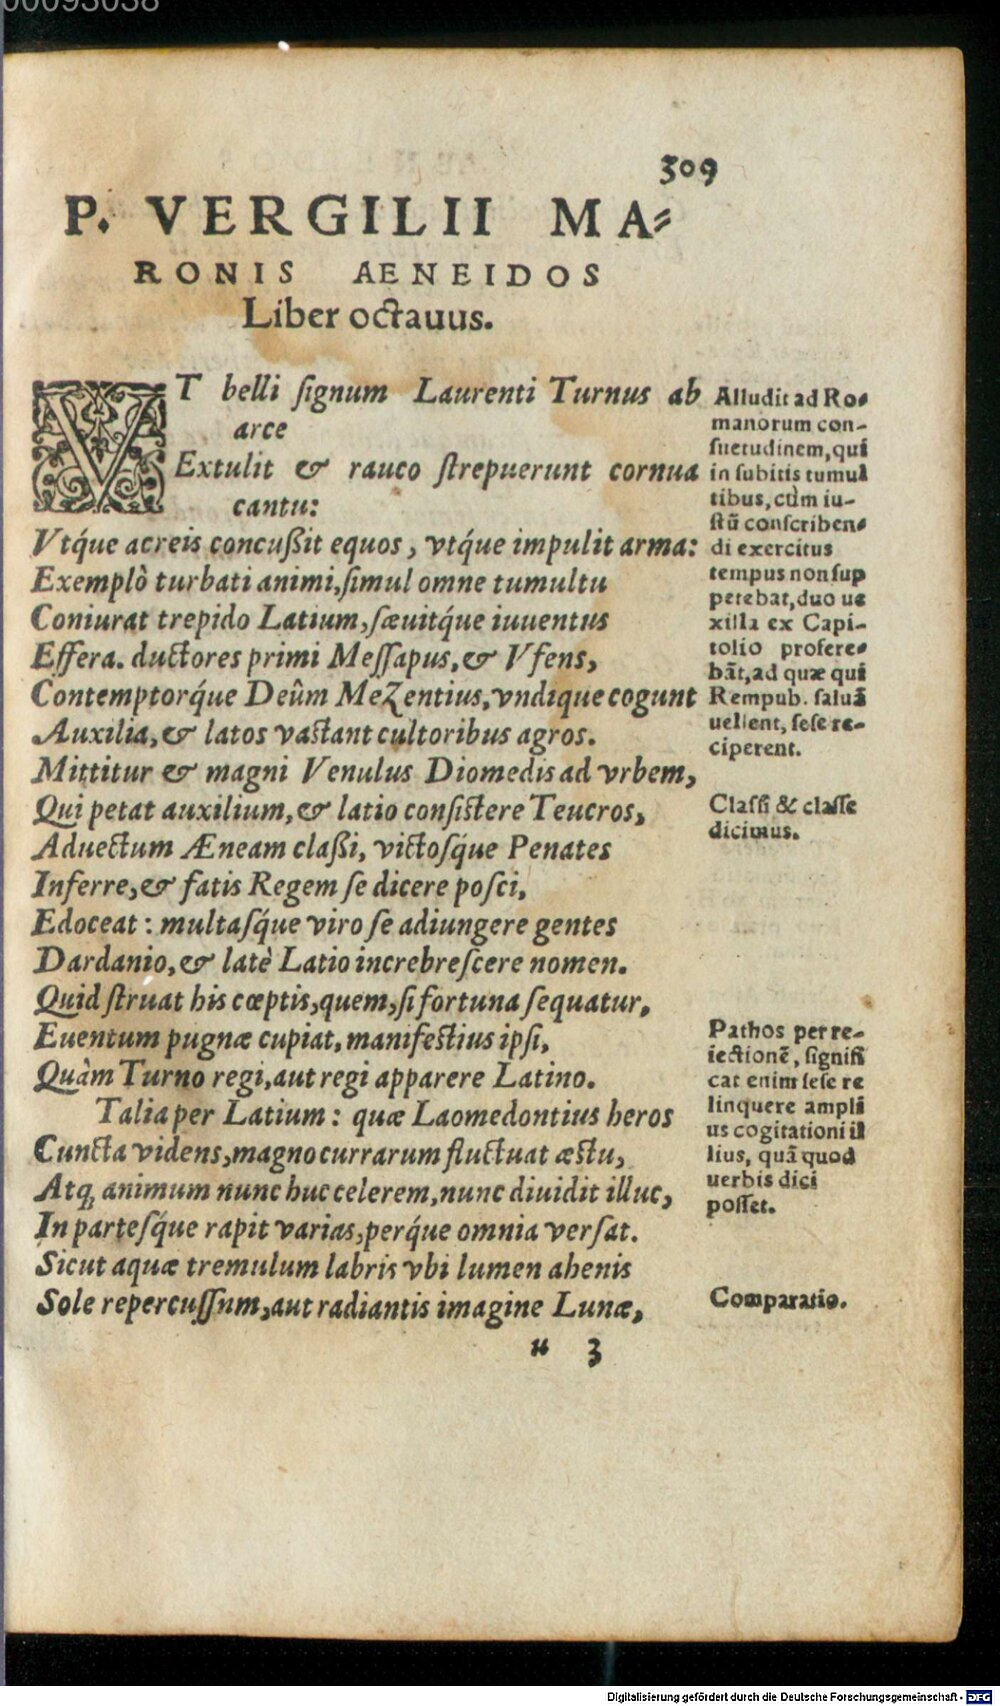 00093038
309
P. VERGILII MA⸗
RONIS AENEIDOS
Liber octauus.
VT belli ſignum Laurenti Turnus ab
arce
Extulit & rauco ſtrepuerunt cornua
cantu:
Vtq́ue acreis concußit equos, vtq́ue impulit arma:
Exemplò turbati animi, ſimul omne tumultu
Coniurat trepido Latium, ſæuitq́ue iuuentus
Effera. ductores primi Meſſapus, & Vfens,
Contemptorq́ue Deûm Mezentius, vndique cogunt
Auxilia, & latos vaſtant cultoribus agros.
Mittitur & magni Venulus Diomedis ad vrbem,
Qui petat auxilium, & latio conſiſtere Teucros,
Aduectum Æneam claßi, victoſq́ue Penates
Inferre, & fatis Regem ſe dicere poſci,
Edoceat: multaſq́ue viro ſe adiungere gentes
Dardanio, & latè Latio increbreſcere nomen.
Quid ſtruat his cœptis, quem, ſi fortuna ſequatur,
Euentum pugnæ cupiat, manifeſtius ipſi,
Quàm Turno regi, aut regi apparere Latino.
Talia per Latium: quæ Laomedontius heros
Cuncta videns, magno currarum fluctuat æſtu,
Atq; animum nunc huc celerem, nunc diuidit illuc,
In parteſq́ue rapit varias, perq́ue omnia verſat.
Sicut aquæ tremulum labris vbi lumen ahenis
Sole repercuſſum, aut radiantis imagine Lunæ,
u 3
Alludit ad Ro⸗
manorum con-
ſuetudinem, qui
in ſubitis tumul
tibus, cùm iu-
ſtū conſcriben⸗
di exercitus
tempus non ſup
petebat, duo ue
xilla ex Capi-
tolio profere⸗
bāt, ad quæ qui
Rempub. ſaluā
uellent, ſeſe re-
ciperent.
Claſſi & claſſe
dicimus.
Pathos per re-
iectionē, ſignifi
cat enim ſeſe re
linquere ampli
us cogitationi il
lius, quā quod
uerbis dici
poſſet.
Comparatio.
Digitalisierung gefördert durch die Deutsche Forschungsgemeinschaft - DFG